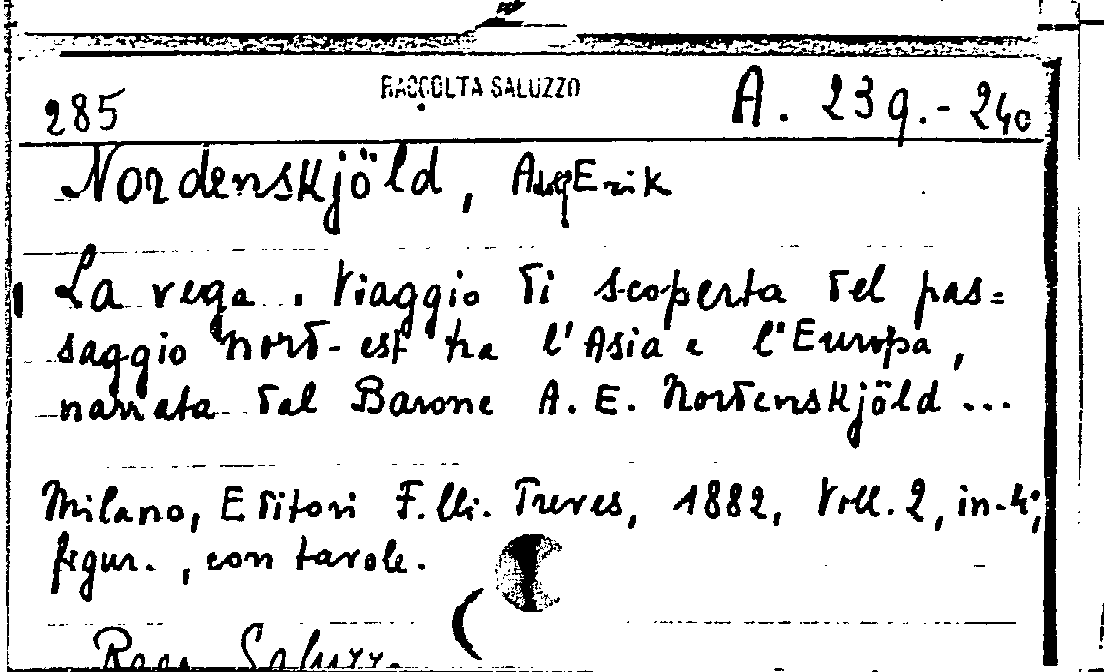 RACCOLTA SALUZZO
285 A. 239.-240
Nordenskjöld, Erik
La vega. Viaggio di scoperta del pas=
saggio nord-est tra l'Asia e l'Europa,
narrata dal Barone A. E. Nordenskjöld ...
Milano, Editori F.lli. Treves, 1882, Voll. 2, in-4°,
figur., con tavole.
Racc. Saluzz.